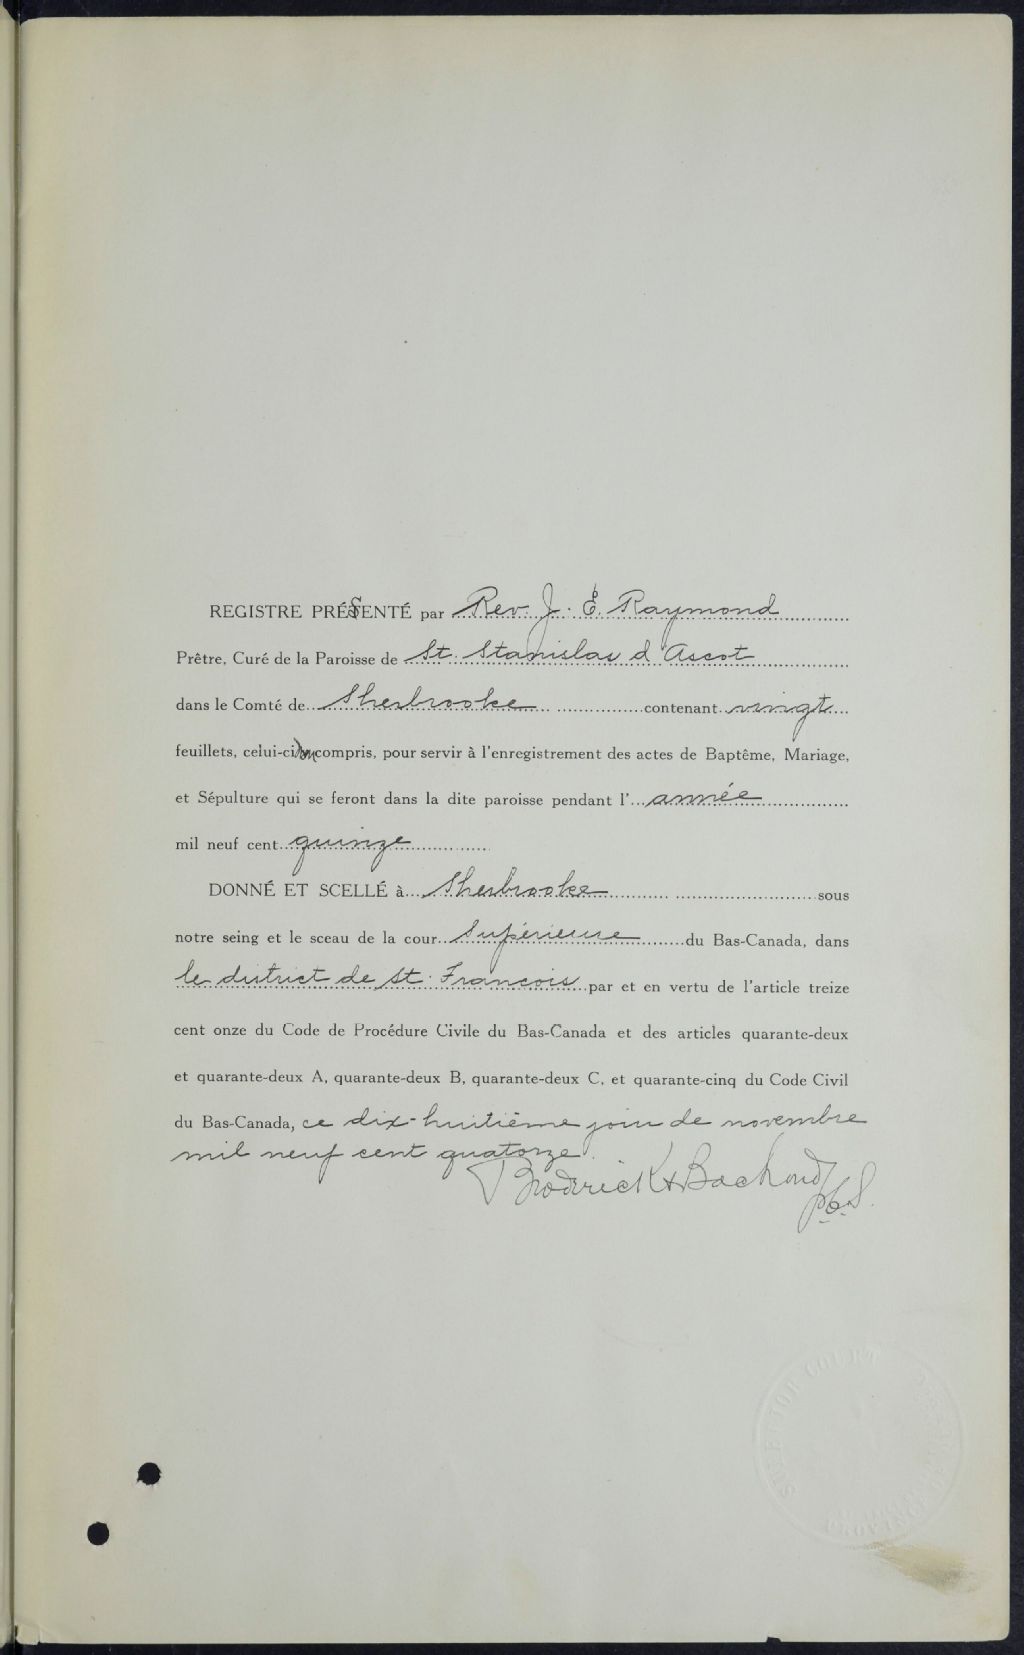 REGISTRE PRÉSENTÉ par Rev. J. E. Raymond
Prêtre, Curé de la Paroisse de St. Stanislas d'Ascot
dans le Comté de Sherbrooke contenant vingt
feuillets, celui-ci non compris, pour servir à l'enregistrement des actes de Baptême, Mariage,
et Sépulture qui se feront dans la dite paroisse pendant l'année
mil neuf cent quinze
DONNÉ ET SCELLÉ à Sherbrooke sous
notre seing et le sceau de la cour Supérieure du Bas-Canada, dans
le district de St. François par et en vertu de l'article treize
cent onze du Code de Procédure Civile du Bas-Canada et des articles quarante-deux
et quarante-deux A, quarante-deux B, quarante-deux C, et quarante-cinq du Code Civil
du Bas-Canada, ce dix-huitième jour de novembre
mil neuf cent quatorze.
Broderick & Bachand
SUPERIOR COURT
PROVINCE DE